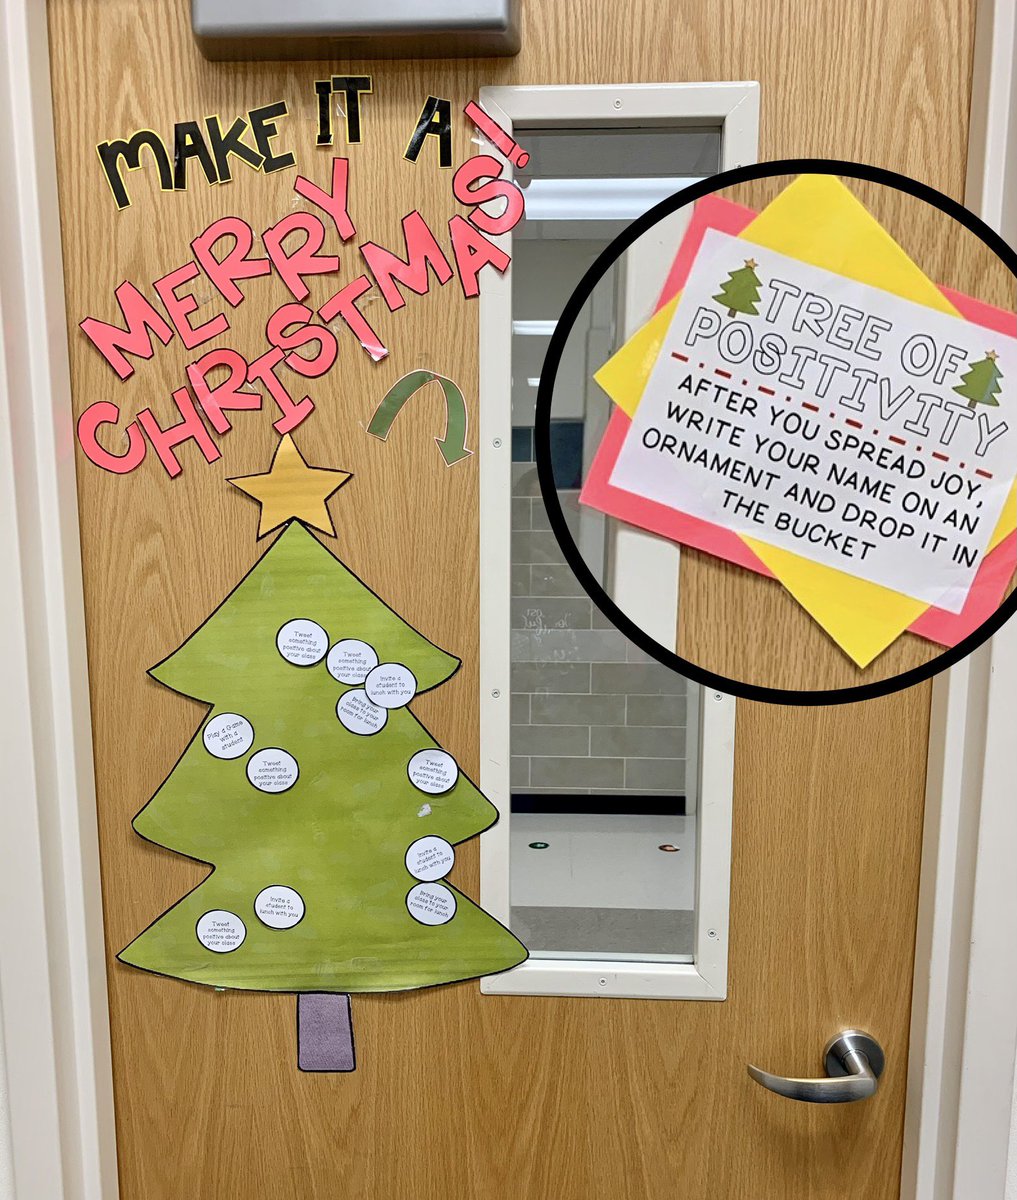 MAKE IT A
MERRY
CHRISTMAS!
TREE OF
POSITIVITY
AFTER YOU SPREAD JOY,
WRITE YOUR NAME ON AN
ORNAMENT AND DROP IT IN
THE BUCKET
Tweet
something
positive about
your class
Tweet
something
positive about
your class
Invite a
student to
lunch with you
Bring your
class to your
room for lunch
Play a Game
with a
student
Tweet
something
positive about
your class
Tweet
something
positive about
your class
Invite a
student to
lunch with you
Bring your
class to your
room for lunch
Invite a
student to
lunch with you
Tweet
something
positive about
your class